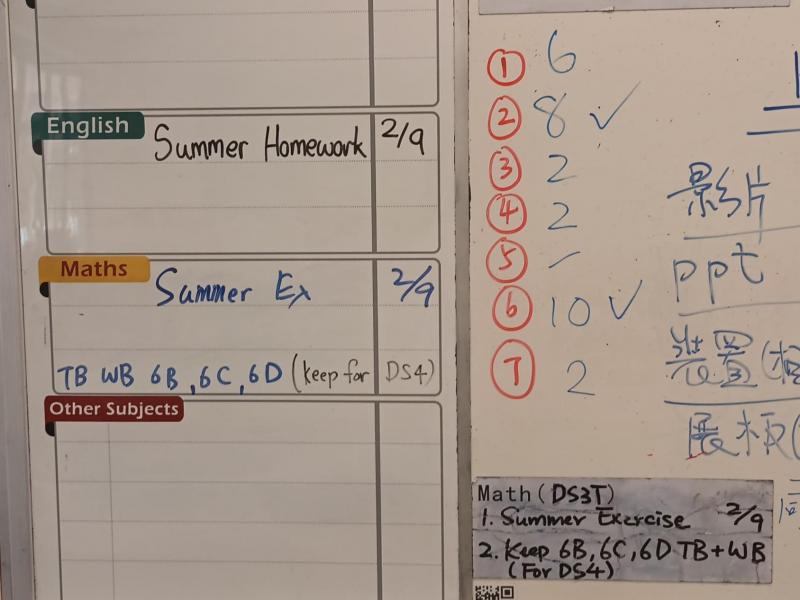 English
Summer Homework 2/9
Maths
Summer Ex 2/9
TB WB 6B, 6C, 6D (keep for DS4)
Other Subjects
① 6
② 8 ✓
③ 2
④ 2
⑤ -
⑥ 10 ✓
Ⓣ 2
影片
ppt
裝置(
展板(
Math(DS3T)
1. Summer Exercise 2/9
2. Keep 6B, 6C, 6D TB+WB
(For DS4)